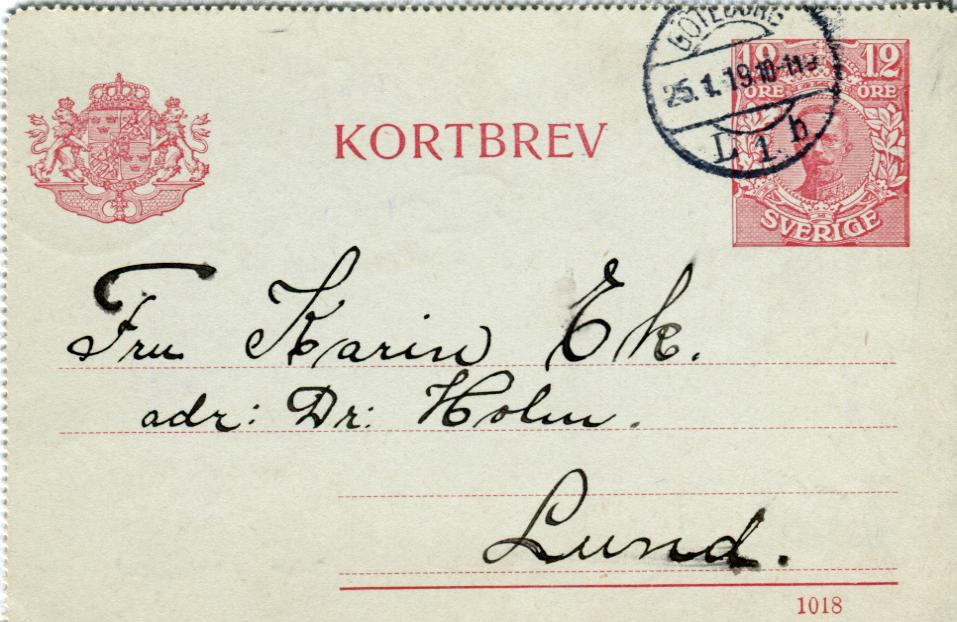 KORTBREV
GÖTEBORG
25.1.19 10-11
L 1. b
12 12
ÖRE ÖRE
SVERIGE
Fru Karin Ek.
adr: Dr: Holm.
Lund.
1018